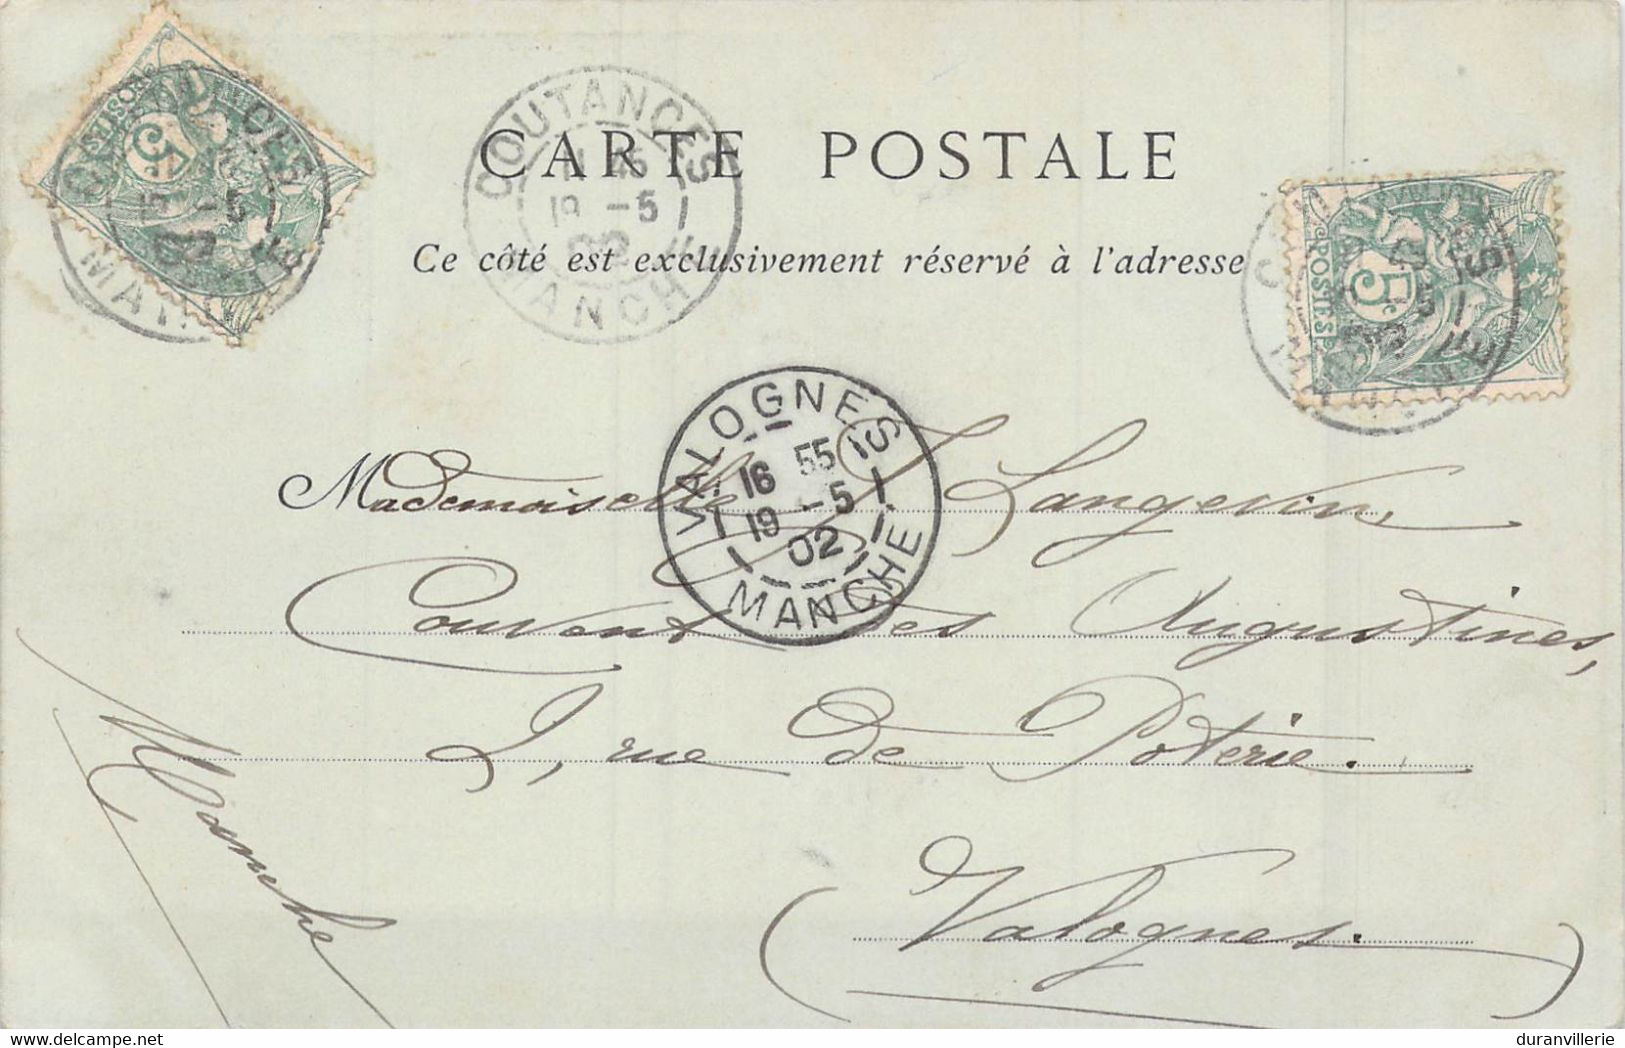 CARTE POSTALE
Ce côté est exclusivement réservé à l'adresse
COUTANCES
19 -5
02
MANCHE
5c
POSTES
VALOGNES
16 55
19 -5
02
MANCHE
Mademoiselle J. Langevin,
Couvent des Augustines,
2, rue de Poterie.
Valognes.
Manche
www.delcampe.net
duranvillerie